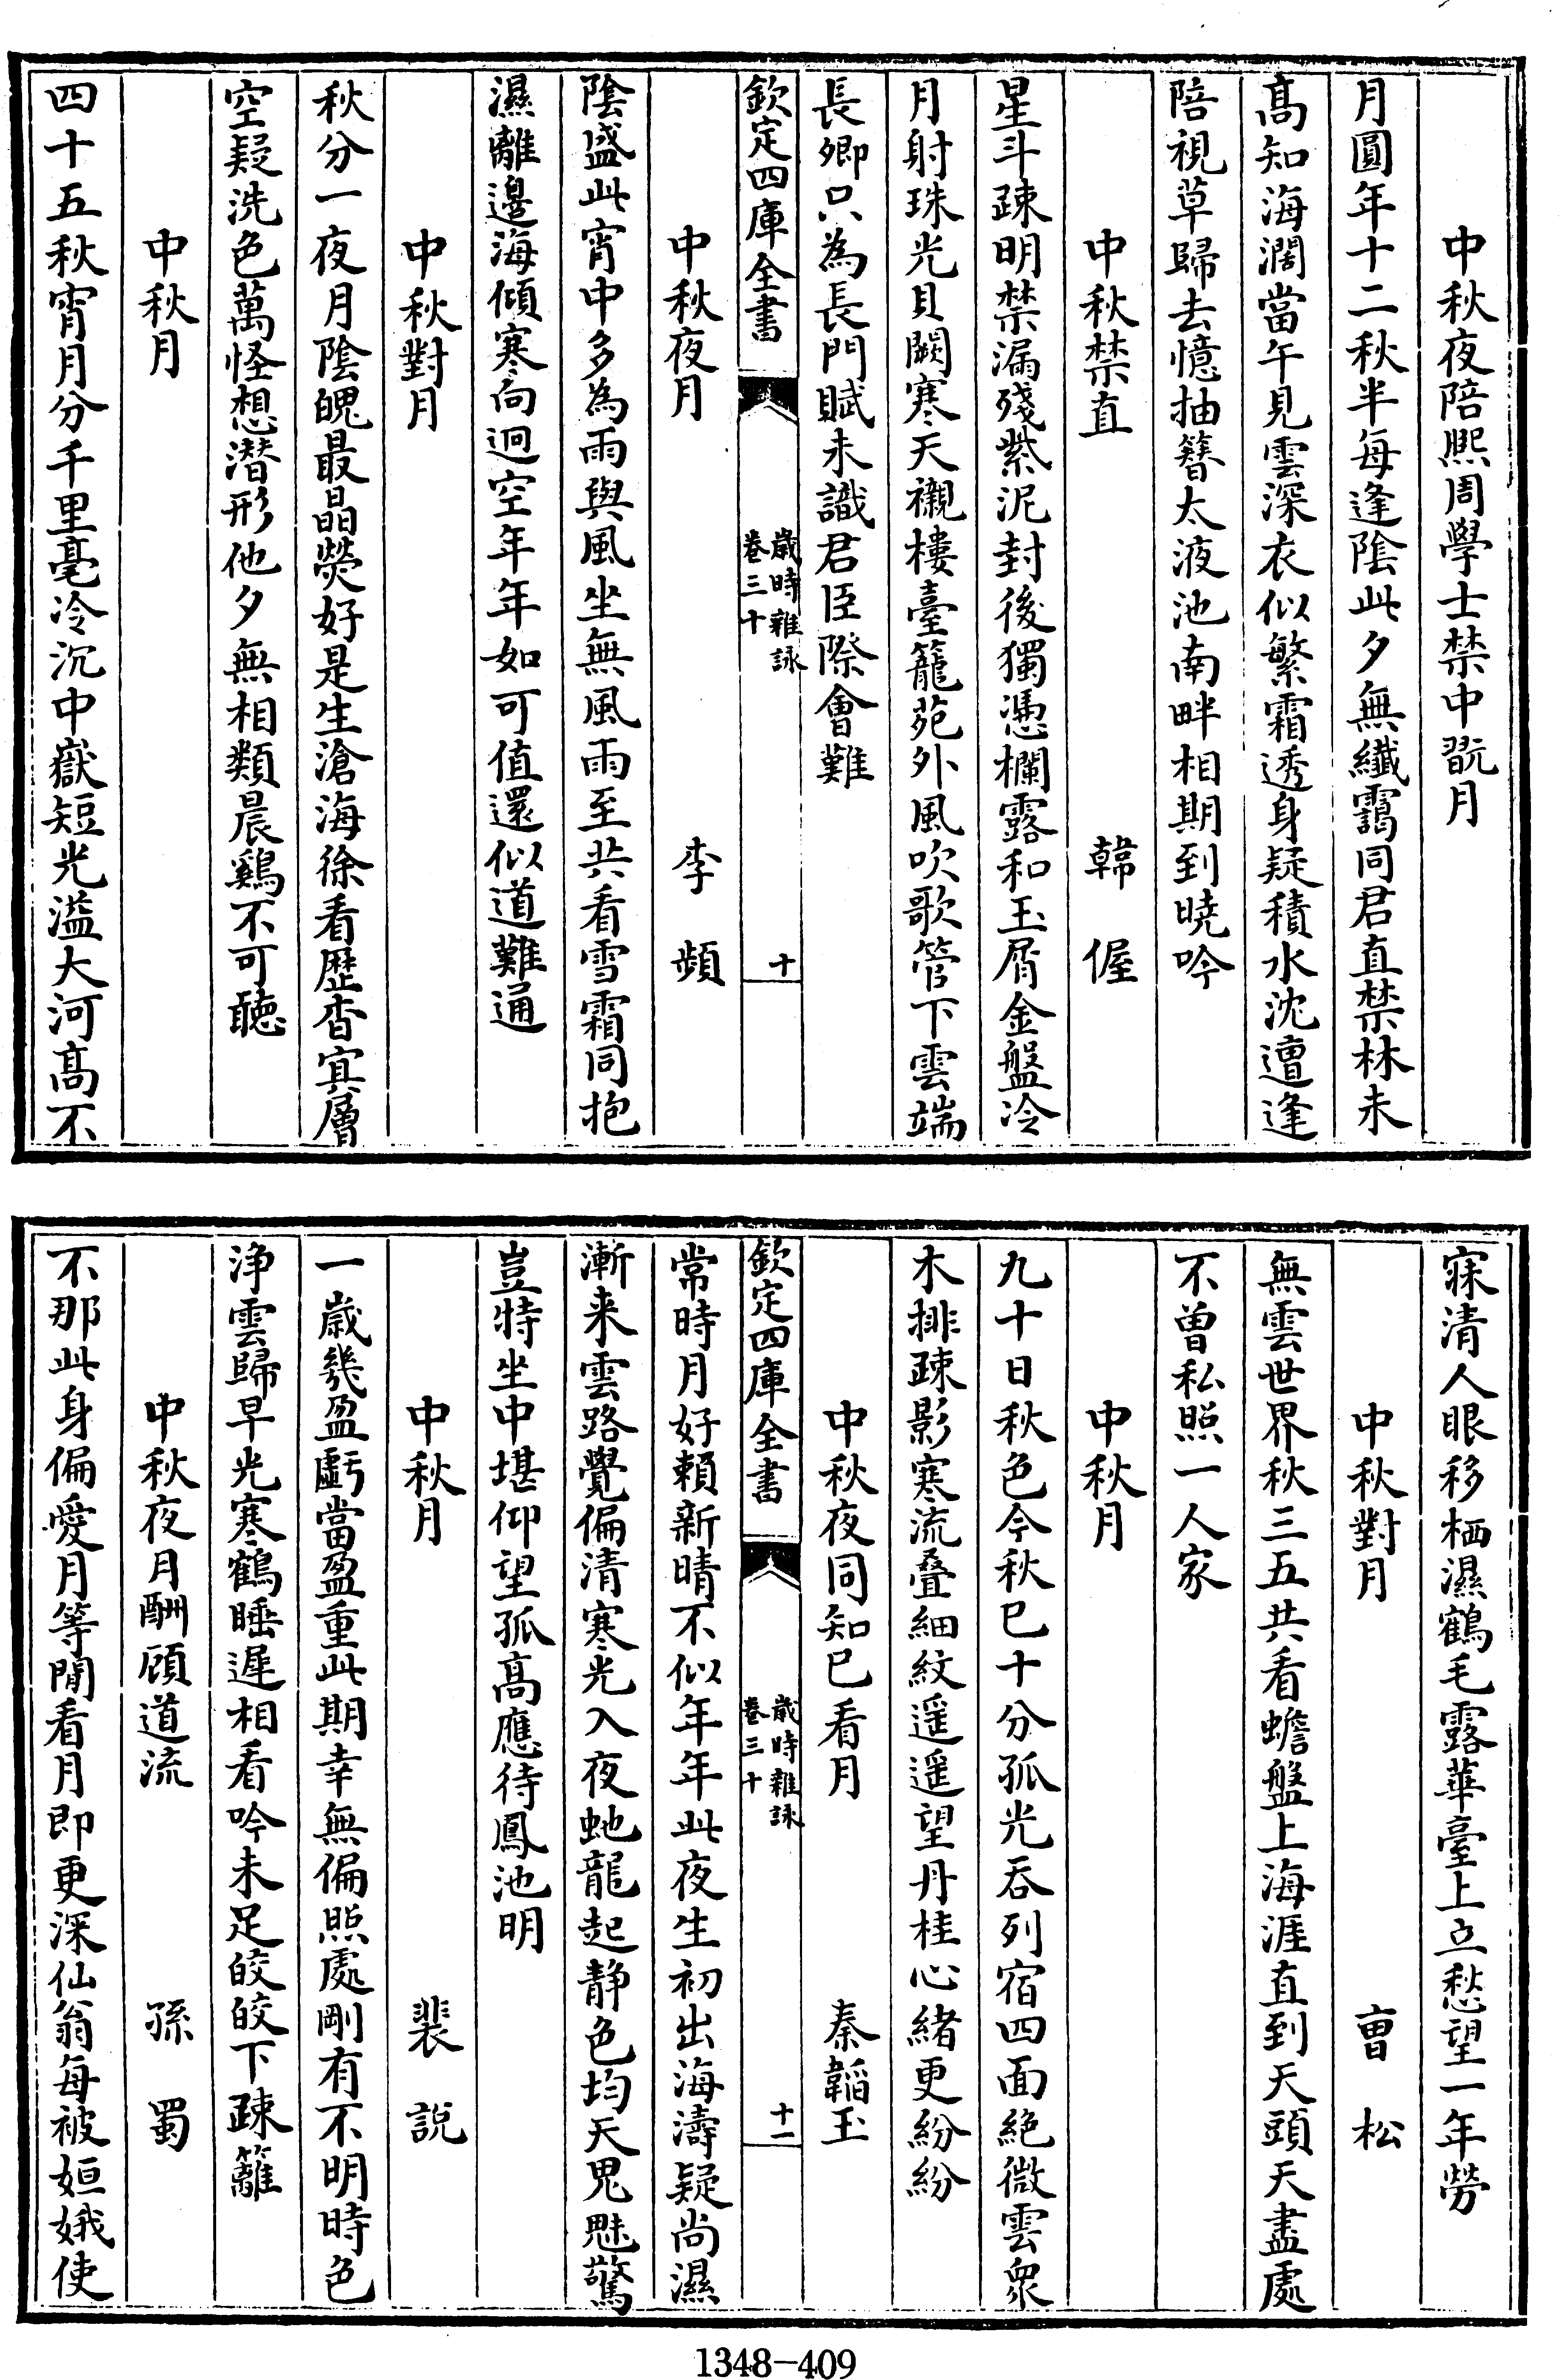 中秋夜陪熙周學士禁中翫月
月圓年十二秋半每逢陰此夕無纖靄同君直禁林未
髙知海濶當午見雲深衣似繁霜透身疑積水沈遭逢
陪視草歸去憶抽簪太液池南畔相期到曉吟
中秋禁直　韓偓
星斗疎明禁漏殘紫泥封後獨憑欄露和玉屑金盤冷
月射珠光貝闕寒天襯樓臺籠苑外風吹歌管下雲端
長卿只為長門賦未識君臣際會難
欽定四庫全書　歲時雜詠卷三十　十
中秋夜月　李頻
陰盛此宵中多為雨與風坐無風雨至共看雪霜同抱
濕離邊海傾寒向迥空年年如可值還似道難通
中秋對月
秋分一夜月陰魄最晶熒好是生滄海徐看歴杳冥層
空疑洗色萬怪想潜形他夕無相類晨鷄不可聽
中秋月
四十五秋宵月分千里毫冷沉中嶽短光溢大河髙不
寐清人眼移栖濕鶴毛露華臺上立愁望一年勞
中秋對月　曹松
無雲世界秋三五共看蟾盤上海涯直到天頭天盡處
不曽私照一人家
中秋月
九十日秋色今秋已十分孤光吞列宿四面絶微雲衆
木排疎影寒流叠細紋遥遥望丹桂心緒更紛紛
中秋夜同知已看月　秦韜玉
欽定四庫全書　歲時雜詠卷三十　十一
常時月好賴新晴不似年年此夜生初出海濤疑尚濕
漸来雲路覺偏清寒光入夜虵龍起静色均天鬼魅驚
豈特坐中堪仰望孤髙應待鳳池明
中秋月　裴説
一歳幾盈虧當盈重此期幸無偏照處剛有不明時色
浄雲歸早光寒鶴睡遲相看吟未足皎皎下疎籬
中秋夜月酬顧道流　孫蜀
不那此身偏愛月等閒看月即更深仙翁每被姮娥使
1348-409